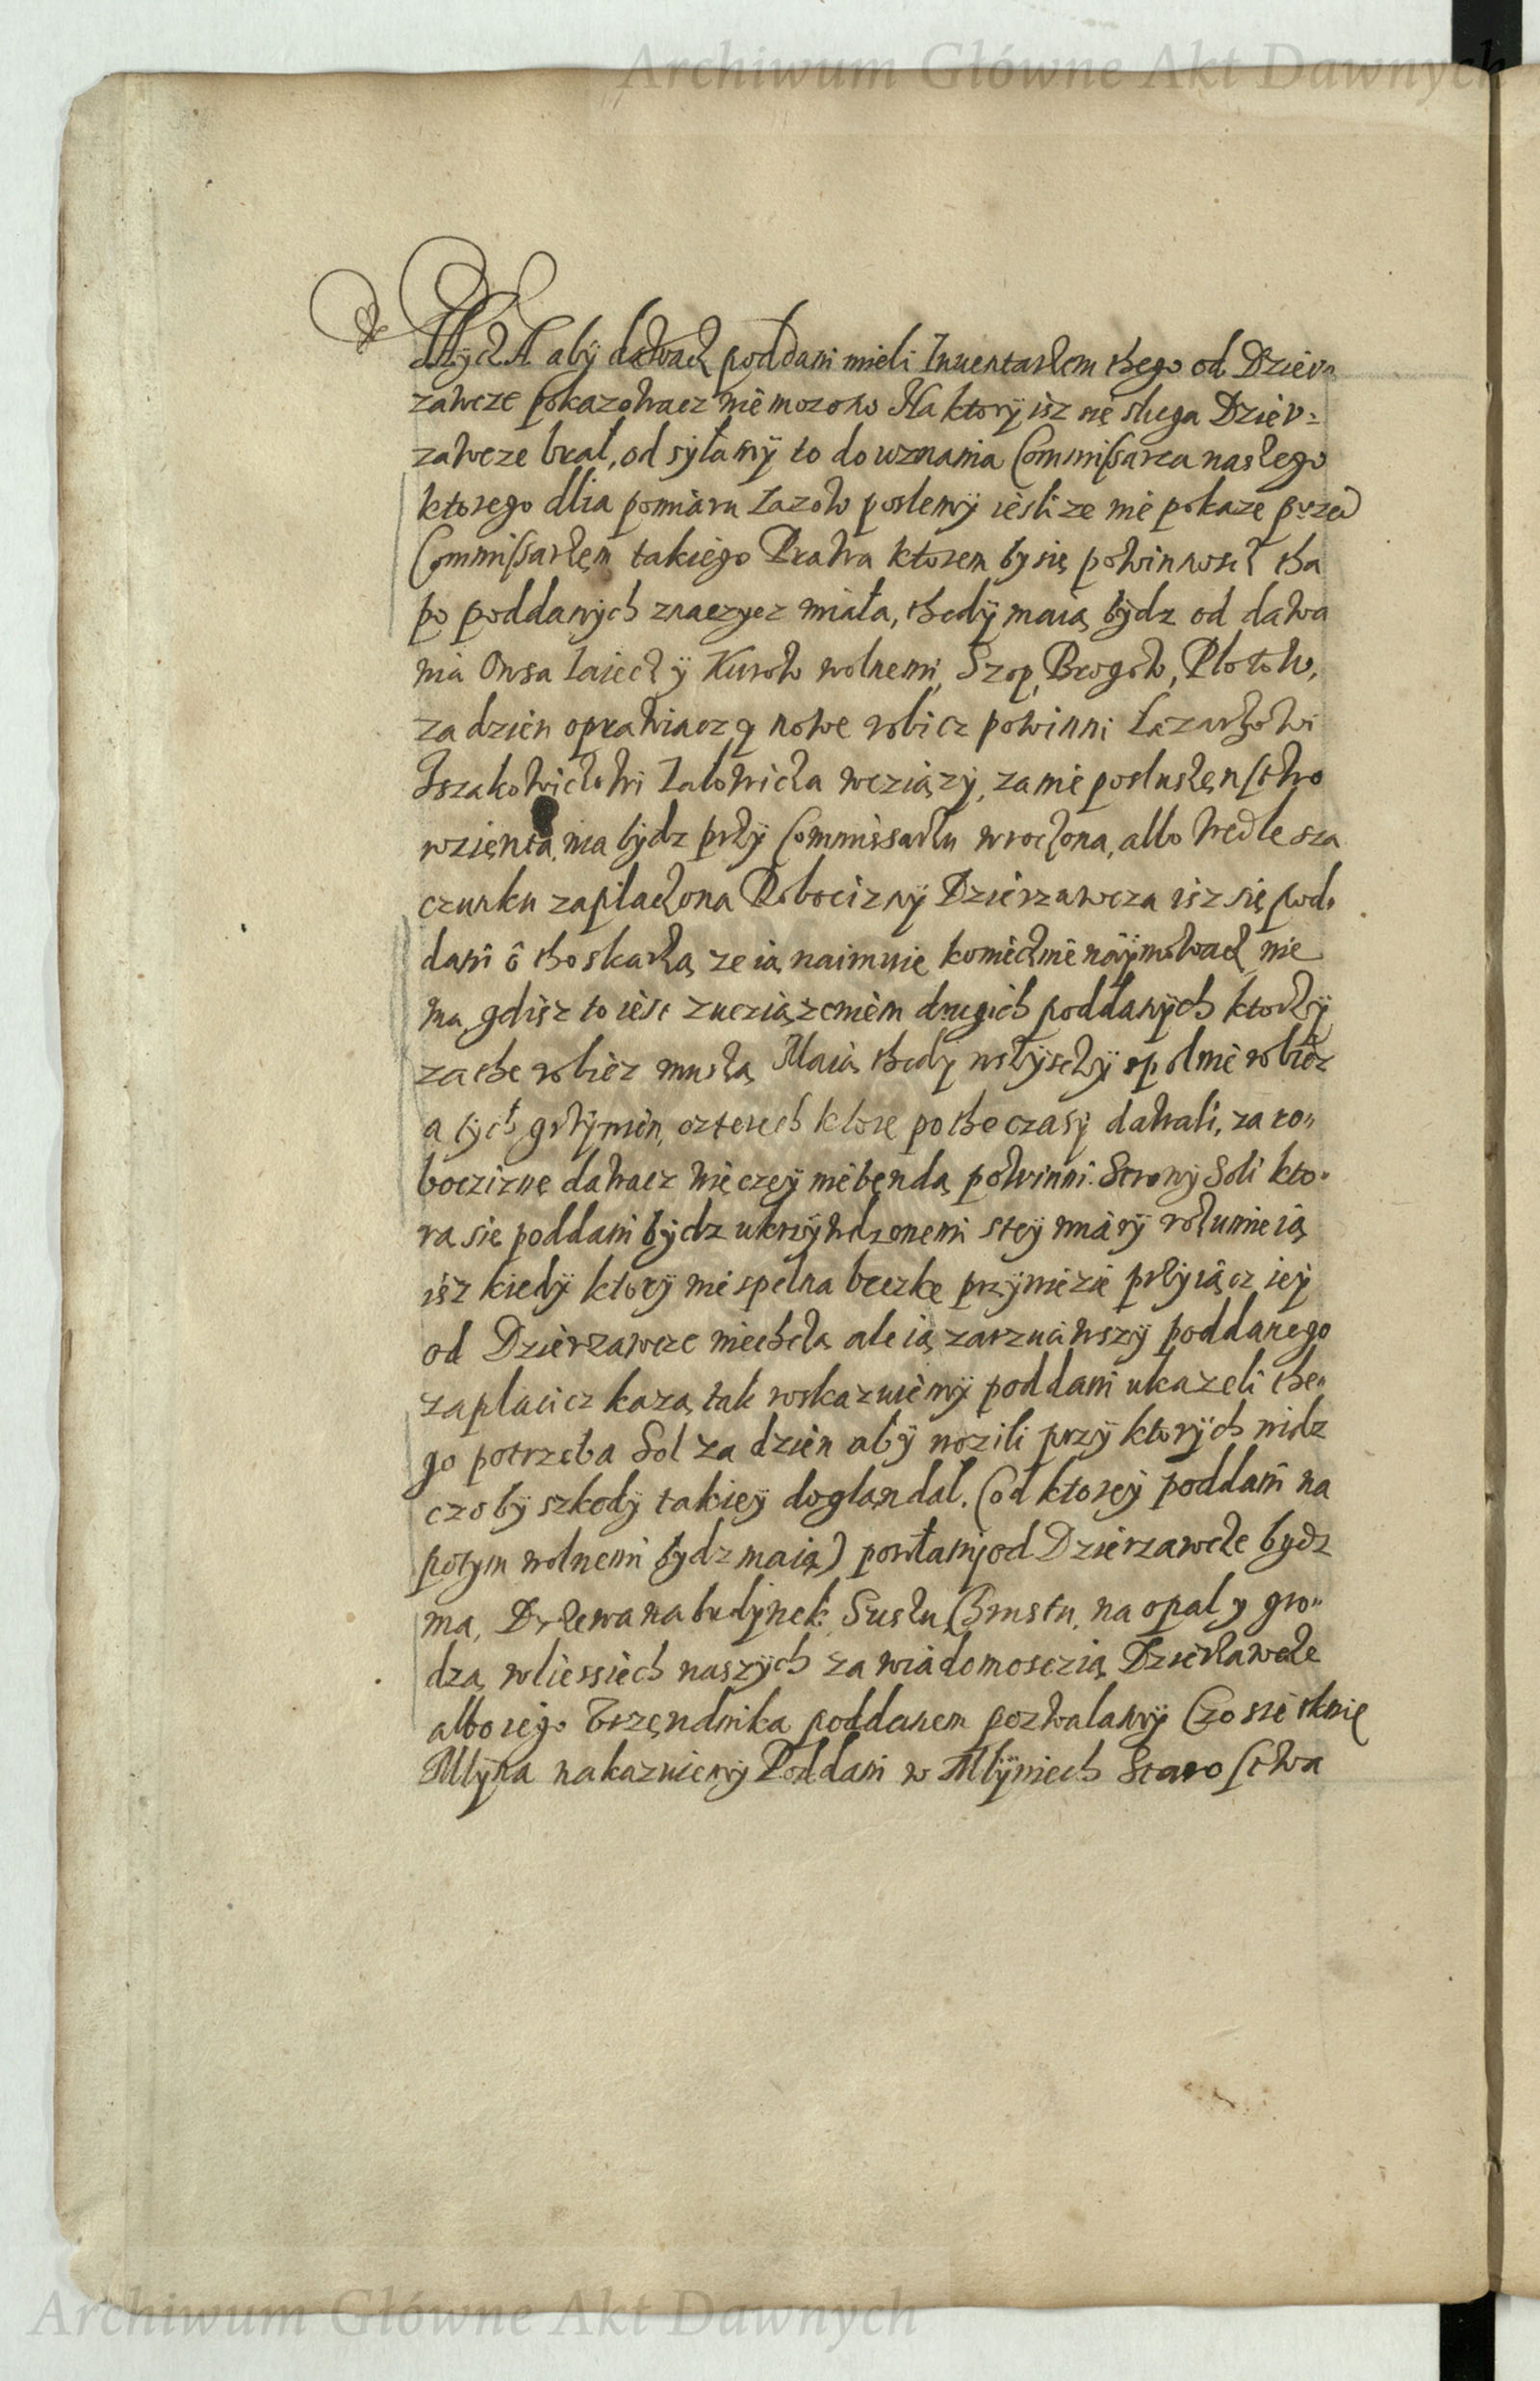 Archiwum Główne Akt Dawnych
dłych A aby dawacz poddani mieli Inuentarzem thego od Dzier„
zawcze pokazowacz nie mozono Na ktory isz się sluga Dzier:
zawcze brał, od syłamÿ to do uznania Commissarza naszego
ktorego dlia pomiaru Lazow poslemÿ iesli ze nie pokaze przed
Commissarzem takiego Prawa ktorem by się powinnoscz tha
po poddanych znaczycz miała, thedÿ maią bÿdz od dawa
nia Owsa Iaiecz ÿ Kurow wolnemi, Szop, Brogow, Plotow,
za dzien oprawiacz y nowe robicz powinni Lazarzowi
Iszakowiczowi Ialowicza wcziązÿ, za nie posluszenstwo
wzienta, ma bÿdz przÿ Commissarzu wroczona, albo wedle sza
czunku zaplaczona Robociznÿ Dzierzawcza isz się pod„
dani o tho skarzą ze ią naimuie koniecznie nāÿmowacz nie
ma gdisz to iest zucziązeniem drugich poddanÿch ktorzÿ
za the robicz muszą Maią thedy wszÿsczÿ spolnie robicz
a tÿch grzÿwien, czterech ktore po the czasÿ dawali, za ro„
boczizne dawacz więczeÿ nie bęndą powinni. Strony Soli kto„
ra sie poddani bÿdz ukrzÿwdzonemi s teÿ miarÿ rozumieią
isz kiedÿ ktorÿ nie spelna beczke przÿniezie przÿiącz ieÿ
od Dzierzawcze niechczą ale ią zarzuciwszÿ poddanego
zaplacicz kazą tak roskazuiemÿ poddani ukazeli the„
go potrzeba Sol za dzien abÿ wozili przÿ ktorÿch widz
czo bÿ szkodÿ takieÿ doglandal. (od ktoreÿ poddani na
potym wolnemi bÿdz maią) posłamj od Dzierzawcze bydz
ma, Drzewa na budÿnek Suszu Chrustu, na opal y gro„
dzą, w liessiech naszÿch za wiadomosczią Dzierzawcze
albo iego Urzęndnika poddanem pozwalamÿ Czo sie tknie
Mlÿna nakazuiemÿ Poddani w Mlÿniech Starostwa
Archiwum Główne Akt Dawnych